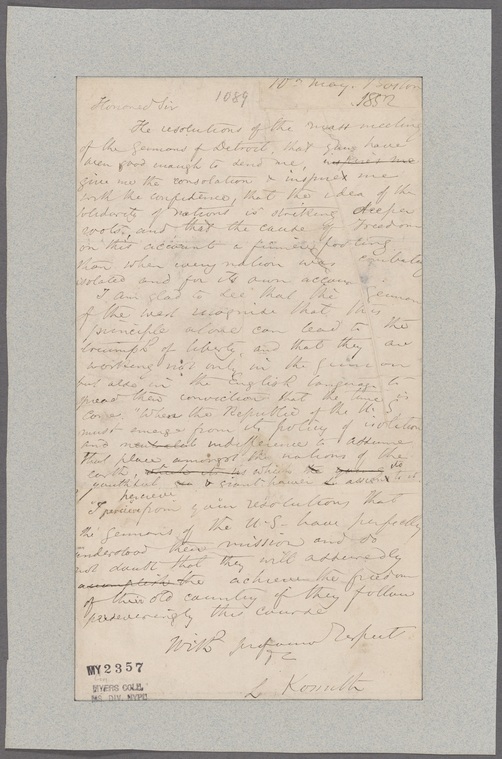 10th May. Boston
1852
1089
Honored Sir
The resolutions of the mass meeting
of the Germans of Detroit, that you have
been good enough to send me,
give me the consolation & inspire me
with the confidence, that the idea of the
solidarity of nations is striking deeper
roots, and that the cause of Freedom
on this account a firmer footing
than when every nation was
isolated and for its own account
I am glad to see that the German
of the west recognise that this
principle alone can lead to the
triumph of liberty, and that they are
working not only in the German
but also in the English language to
spread their conviction that the time is
come, "When the Republic of the U. S
must emerge from its policy of isolation
and neutral indifference to assume
that place amongst the nations of the
earth, which
youthful & giant power to it
perceive
"I perceive from your resolutions that
the Germans of the U.S. have perfectly
understood their mission and do
not doubt that they will assuredly
accomplish the achieve the freedom
of their old country if they follow
perseveringly this course
With profound Respect
L Kossuth
MY 2357
MYERS COLL.
MS. DIV. NYPL